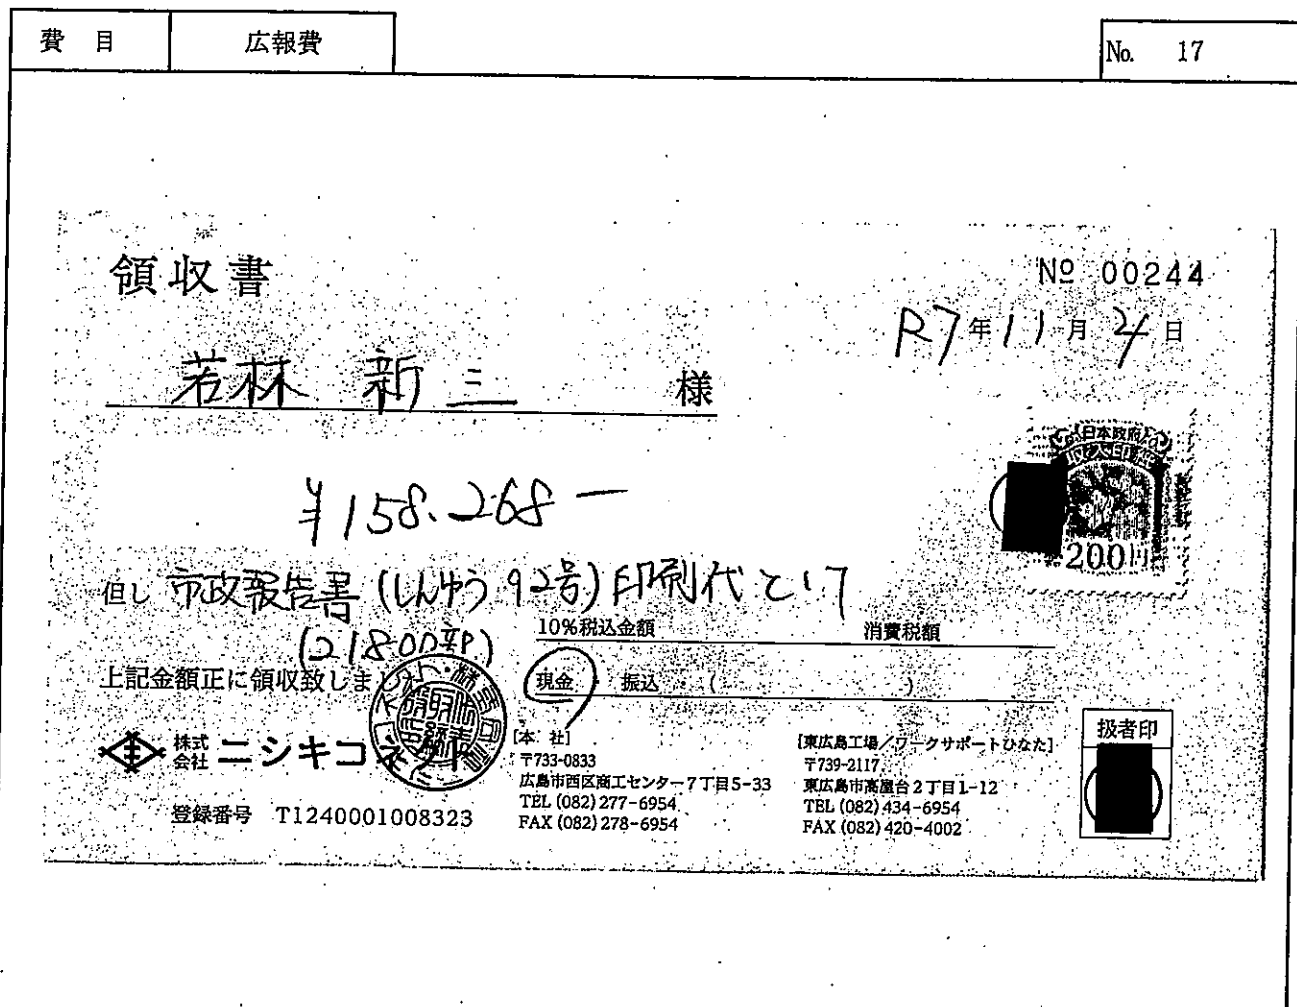 費 目 広報費 No. 17
領収書 № 00244
R7年11月4日
若林 新三 様
日本政府
収入印紙
200円
¥158.268-
但し 市政報告書(しんゆう92号)印刷代として
(21800部)
10%税込金額 消費税額
上記金額正に領収致しました
現金・振込 ( )
株式会社 ニシキコネクト
登録番号 T1240001008323
[本 社]
〒733-0833
広島市西区商工センター7丁目5-33
TEL (082)277-6954
FAX (082)278-6954
[東広島工場/ワークサポートひなた]
〒739-2117
東広島市高屋台2丁目1-12
TEL (082)434-6954
FAX (082)420-4002
扱者印